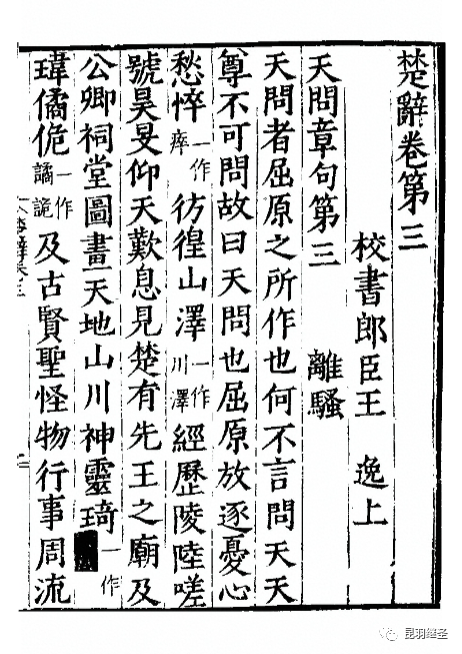 楚辭卷第三
校書郎臣王 逸上
天問章句第三 離騷
天問者屈原之所作也何不言問天天
尊不可問故曰天問也屈原放逐憂心
愁悴一作瘁彷徨山澤一作川澤經歷陵陸嗟
號昊旻仰天歎息見楚有先王之廟及
公卿祠堂圖畫天地山川神靈琦一作
瑋僑佹一作譎詭及古賢聖怪物行事周流
昆羽继圣